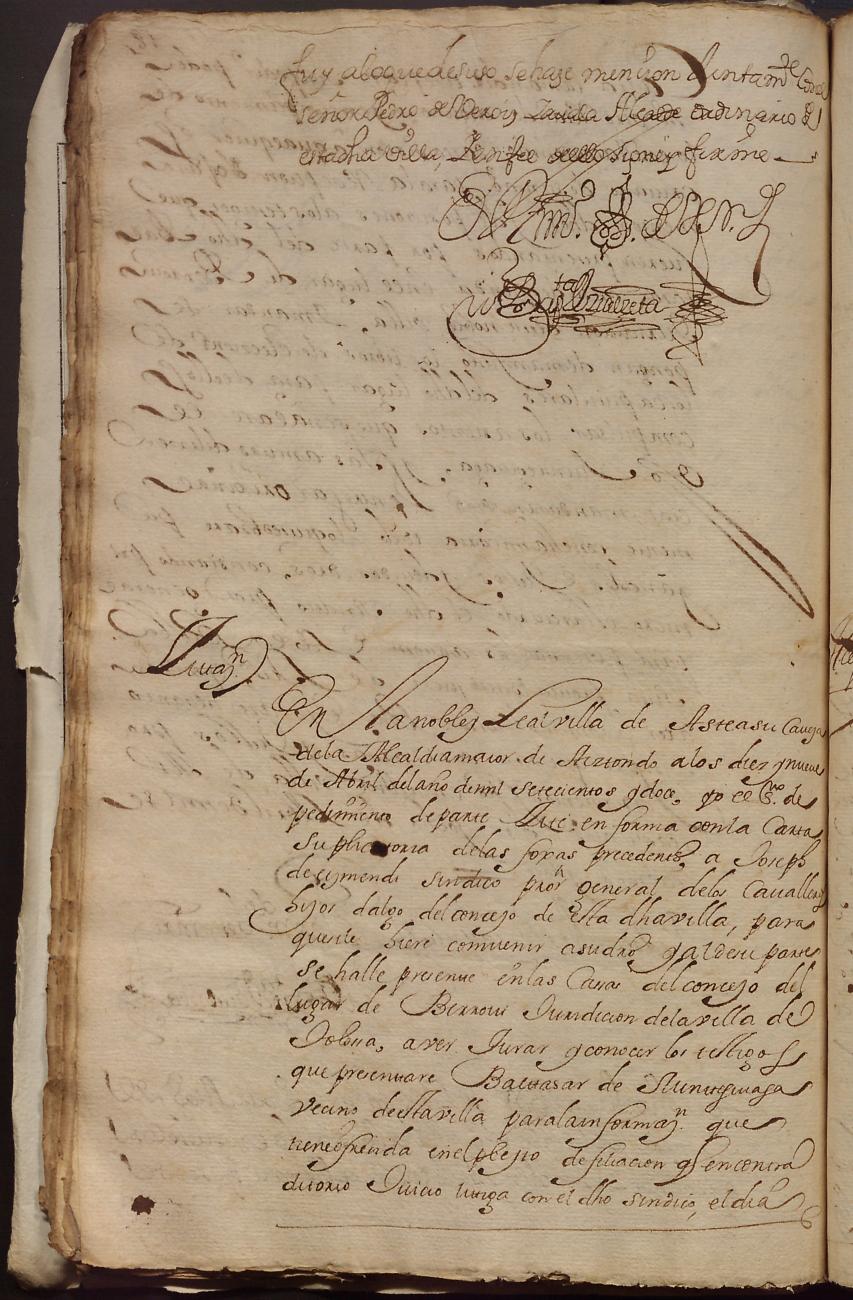 fuy aloquedesuso sehaze mencion Juntamte Con el
señor Pedro de Zavala Alcalde ordinario de
estadha villa, Y enfee dello signey firme
En tesº de verd.
Bapta Urdalleta
Zitazn
En la nobley Leal villa de Asteasu Caveza
dela Alcaldiamaior de Aiztondo alos diez ynueve
de Abril delaño demil setecientos ydoce, yo el Sno. de
pedimento de parte Zité en forma conla Carta
Suplicatoria delas foxas precedentes, a Joseph
de Eymendi sindico pror general delos Cavalleros
hijos dalgo del concejo de esta dhavilla, para
quesile biere combenir asudro, yaldesu parte
se halle presente enlas Casas del concejo del
lugar de Berrovi Juridicion delavilla de
Tolosa, aver Jurar yconocer los testigos
que presentare Baltasar de
vecino deestavilla paralainformazn. que
tieneofrecida enelpleyto de filiacion qe encontra
ditorio Juicio litiga con el dho sindico, el dia